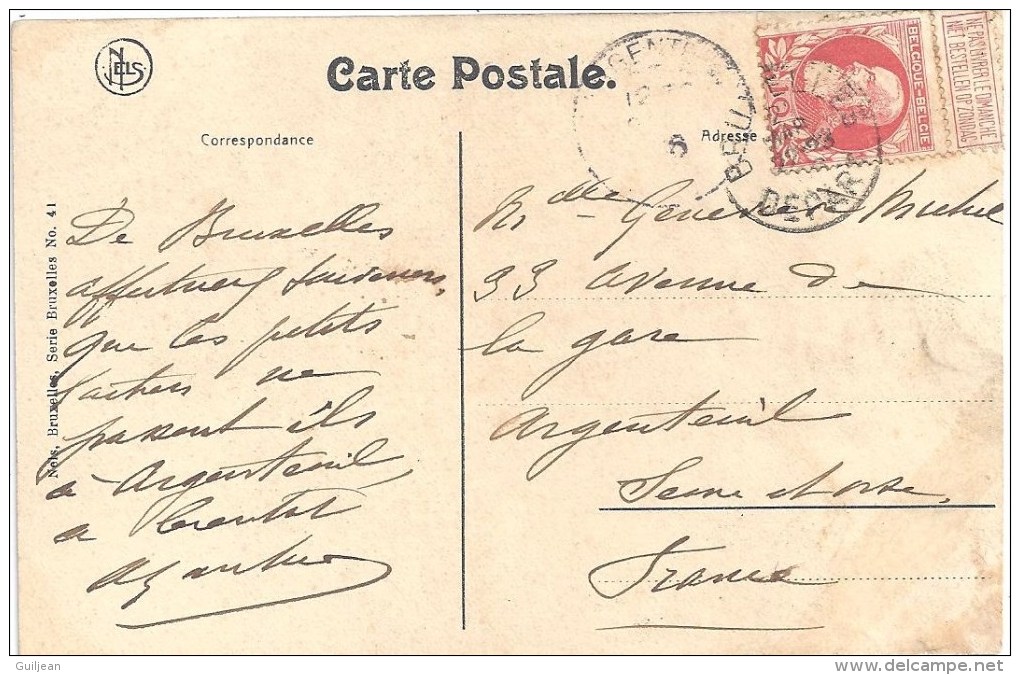 NELS
Carte Postale.
Correspondance
Adresse
BELGIQUE-BELGIË
NE PAS LIVRER LE DIMANCHE
NIET BESTELLEN OP ZONDAG
DEPART
6
Nels, Bruxelles, Serie Bruxelles No. 41
De Bruxelles
affectueux souvenirs,
que les petits
ne
passent ils
à Argenteuil,
a bientot
Mlle Michel
33 avenue de
la gare
Argenteuil
Seine et Oise,
France
Guiljean
www.delcampe.net